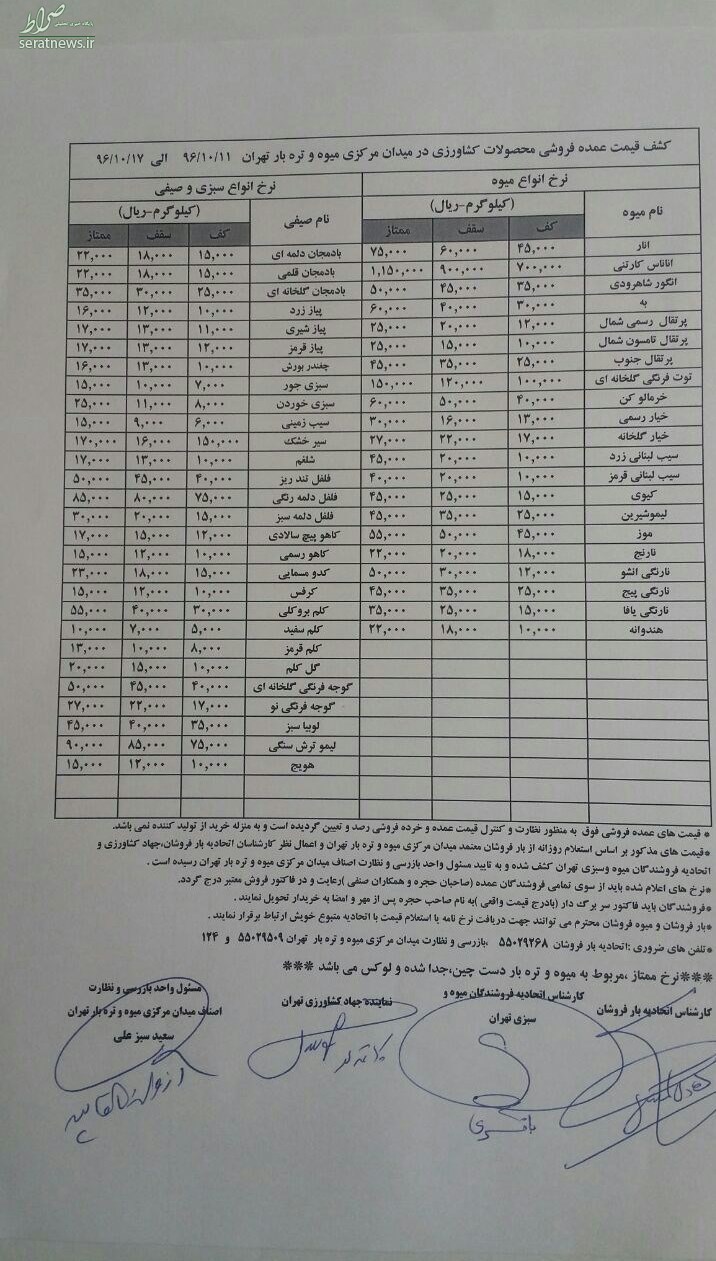 صراط
seratnews.ir
کشف قیمت عمده فروشی محصولات کشاورزی در میدان مرکزی میوه و تره بار تهران ۹۶/۱۰/۱۱ الی ۹۶/۱۰/۱۷
نرخ انواع میوه
نرخ انواع سبزی و صیفی
نام میوه (کیلوگرم-ریال) نام صیفی (کیلوگرم-ریال)
کف سقف ممتاز کف سقف ممتاز
انار ۴۵,۰۰۰ ۶۰,۰۰۰ ۷۵,۰۰۰ بادمجان دلمه ای ۱۵,۰۰۰ ۱۸,۰۰۰ ۲۲,۰۰۰
اناناس کارتنی ۷۰۰,۰۰۰ ۹۰۰,۰۰۰ ۱,۱۵۰,۰۰۰ بادمجان قلمی ۱۵,۰۰۰ ۱۸,۰۰۰ ۲۲,۰۰۰
انگور شاهرودی ۳۵,۰۰۰ ۴۵,۰۰۰ ۵۰,۰۰۰ بادمجان گلخانه ای ۲۵,۰۰۰ ۳۰,۰۰۰ ۳۵,۰۰۰
به ۳۰,۰۰۰ ۴۰,۰۰۰ ۶۰,۰۰۰ پیاز زرد ۱۰,۰۰۰ ۱۲,۰۰۰ ۱۶,۰۰۰
پرتقال رسمی شمال ۱۲,۰۰۰ ۲۰,۰۰۰ ۲۵,۰۰۰ پیاز شیری ۱۱,۰۰۰ ۱۳,۰۰۰ ۱۷,۰۰۰
پرتقال تامسون شمال ۱۰,۰۰۰ ۱۵,۰۰۰ ۲۵,۰۰۰ پیاز قرمز ۱۲,۰۰۰ ۱۳,۰۰۰ ۱۷,۰۰۰
پرتقال جنوب ۲۵,۰۰۰ ۳۵,۰۰۰ ۴۵,۰۰۰ چغندر بورش ۱۰,۰۰۰ ۱۳,۰۰۰ ۱۶,۰۰۰
توت فرنگی گلخانه ای ۱۰۰,۰۰۰ ۱۲۰,۰۰۰ ۱۵۰,۰۰۰ سبزی جور ۷,۰۰۰ ۱۰,۰۰۰ ۱۵,۰۰۰
خرمالو کن ۴۰,۰۰۰ ۵۰,۰۰۰ ۶۰,۰۰۰ سبزی خوردن ۸,۰۰۰ ۱۱,۰۰۰ ۲۵,۰۰۰
خیار رسمی ۱۳,۰۰۰ ۱۶,۰۰۰ ۳۰,۰۰۰ سیب زمینی ۶,۰۰۰ ۹,۰۰۰ ۱۵,۰۰۰
خیار گلخانه ۱۷,۰۰۰ ۲۲,۰۰۰ ۲۷,۰۰۰ سیر خشک ۱۵۰,۰۰۰ ۱۶,۰۰۰ ۱۷۰,۰۰۰
سیب لبنانی زرد ۱۰,۰۰۰ ۲۰,۰۰۰ ۴۵,۰۰۰ شلغم ۱۰,۰۰۰ ۱۳,۰۰۰ ۱۷,۰۰۰
سیب لبنانی قرمز ۱۰,۰۰۰ ۲۰,۰۰۰ ۴۰,۰۰۰ فلفل تند ریز ۴۰,۰۰۰ ۴۵,۰۰۰ ۵۰,۰۰۰
کیوی ۱۵,۰۰۰ ۲۵,۰۰۰ ۴۵,۰۰۰ فلفل دلمه رنگی ۷۵,۰۰۰ ۸۰,۰۰۰ ۸۵,۰۰۰
لیموشیرین ۲۵,۰۰۰ ۳۵,۰۰۰ ۴۵,۰۰۰ فلفل دلمه سبز ۱۵,۰۰۰ ۲۰,۰۰۰ ۳۰,۰۰۰
موز ۴۵,۰۰۰ ۵۰,۰۰۰ ۵۵,۰۰۰ کاهو پیچ سالادی ۱۲,۰۰۰ ۱۵,۰۰۰ ۱۷,۰۰۰
نارنج ۱۸,۰۰۰ ۲۰,۰۰۰ ۲۲,۰۰۰ کاهو رسمی ۱۰,۰۰۰ ۱۲,۰۰۰ ۱۵,۰۰۰
نارنگی انشو ۱۲,۰۰۰ ۳۰,۰۰۰ ۵۰,۰۰۰ کدو مسمایی ۱۵,۰۰۰ ۱۸,۰۰۰ ۲۳,۰۰۰
نارنگی پیج ۲۵,۰۰۰ ۳۵,۰۰۰ ۴۵,۰۰۰ کرفس ۱۰,۰۰۰ ۱۲,۰۰۰ ۱۵,۰۰۰
نارنگی یافا ۱۵,۰۰۰ ۲۵,۰۰۰ ۳۵,۰۰۰ کلم بروکلی ۳۰,۰۰۰ ۴۰,۰۰۰ ۵۵,۰۰۰
هندوانه ۱۰,۰۰۰ ۱۸,۰۰۰ ۲۲,۰۰۰ کلم سفید ۵,۰۰۰ ۷,۰۰۰ ۱۰,۰۰۰
کلم قرمز ۸,۰۰۰ ۱۰,۰۰۰ ۱۳,۰۰۰
گل کلم ۱۰,۰۰۰ ۱۵,۰۰۰ ۲۰,۰۰۰
گوجه فرنگی گلخانه ای ۴۰,۰۰۰ ۴۵,۰۰۰ ۵۰,۰۰۰
گوجه فرنگی نو ۱۷,۰۰۰ ۲۲,۰۰۰ ۲۷,۰۰۰
لوبیا سبز ۳۵,۰۰۰ ۴۰,۰۰۰ ۴۵,۰۰۰
لیمو ترش سنگی ۷۵,۰۰۰ ۸۵,۰۰۰ ۹۰,۰۰۰
هویج ۱۰,۰۰۰ ۱۲,۰۰۰ ۱۵,۰۰۰
* قیمت های عمده فروشی فوق به منظور نظارت و کنترل قیمت عمده و خرده فروشی رصد و تعیین گردیده است و به منزله خرید از تولید کننده نمی باشد.
*قیمت های مذکور بر اساس استعلام روزانه از بار فروشان معتمد میدان مرکزی میوه و تره بار تهران و اعمال نظر کارشناسان اتحادیه بار فروشان،جهاد کشاورزی و
اتحادیه فروشندگان میوه وسبزی تهران کشف شده و به تایید مسئول واحد بازرسی و نظارت اصناف میدان مرکزی میوه و تره بار تهران رسیده است .
*نرخ های اعلام شده باید از سوی تمامی فروشندگان عمده (صاحبان حجره و همکاران صنفی )رعایت و در فاکتور فروش معتبر درج گردد.
*فروشندگان باید فاکتور سر برگ دار (بادرج قیمت واقعی )به نام صاحب حجره پس از مهر و امضا به خریدار تحویل نمایند .
*بار فروشان و میوه فروشان محترم می توانند جهت دریافت نرخ نامه یا استعلام قیمت با اتحادیه متبوع خویش ارتباط برقرار نمایند .
*تلفن های ضروری :اتحادیه بار فروشان ۵۵۰۲۹۲۶۸ ،بازرسی و نظارت میدان مرکزی میوه و تره بار تهران ۵۵۰۲۹۵۰۹ و ۱۲۴
***نرخ ممتاز ،مربوط به میوه و تره بار دست چین،جدا شده و لوکس می باشد ***
کارشناس اتحادیه بار فروشان
کارشناس اتحادیه فروشندگان میوه و
سبزی تهران
نماینده جهاد کشاورزی تهران
مسئول واحد بازرسی و نظارت
اصناف میدان مرکزی میوه و تره بار تهران
سعید سبز علی